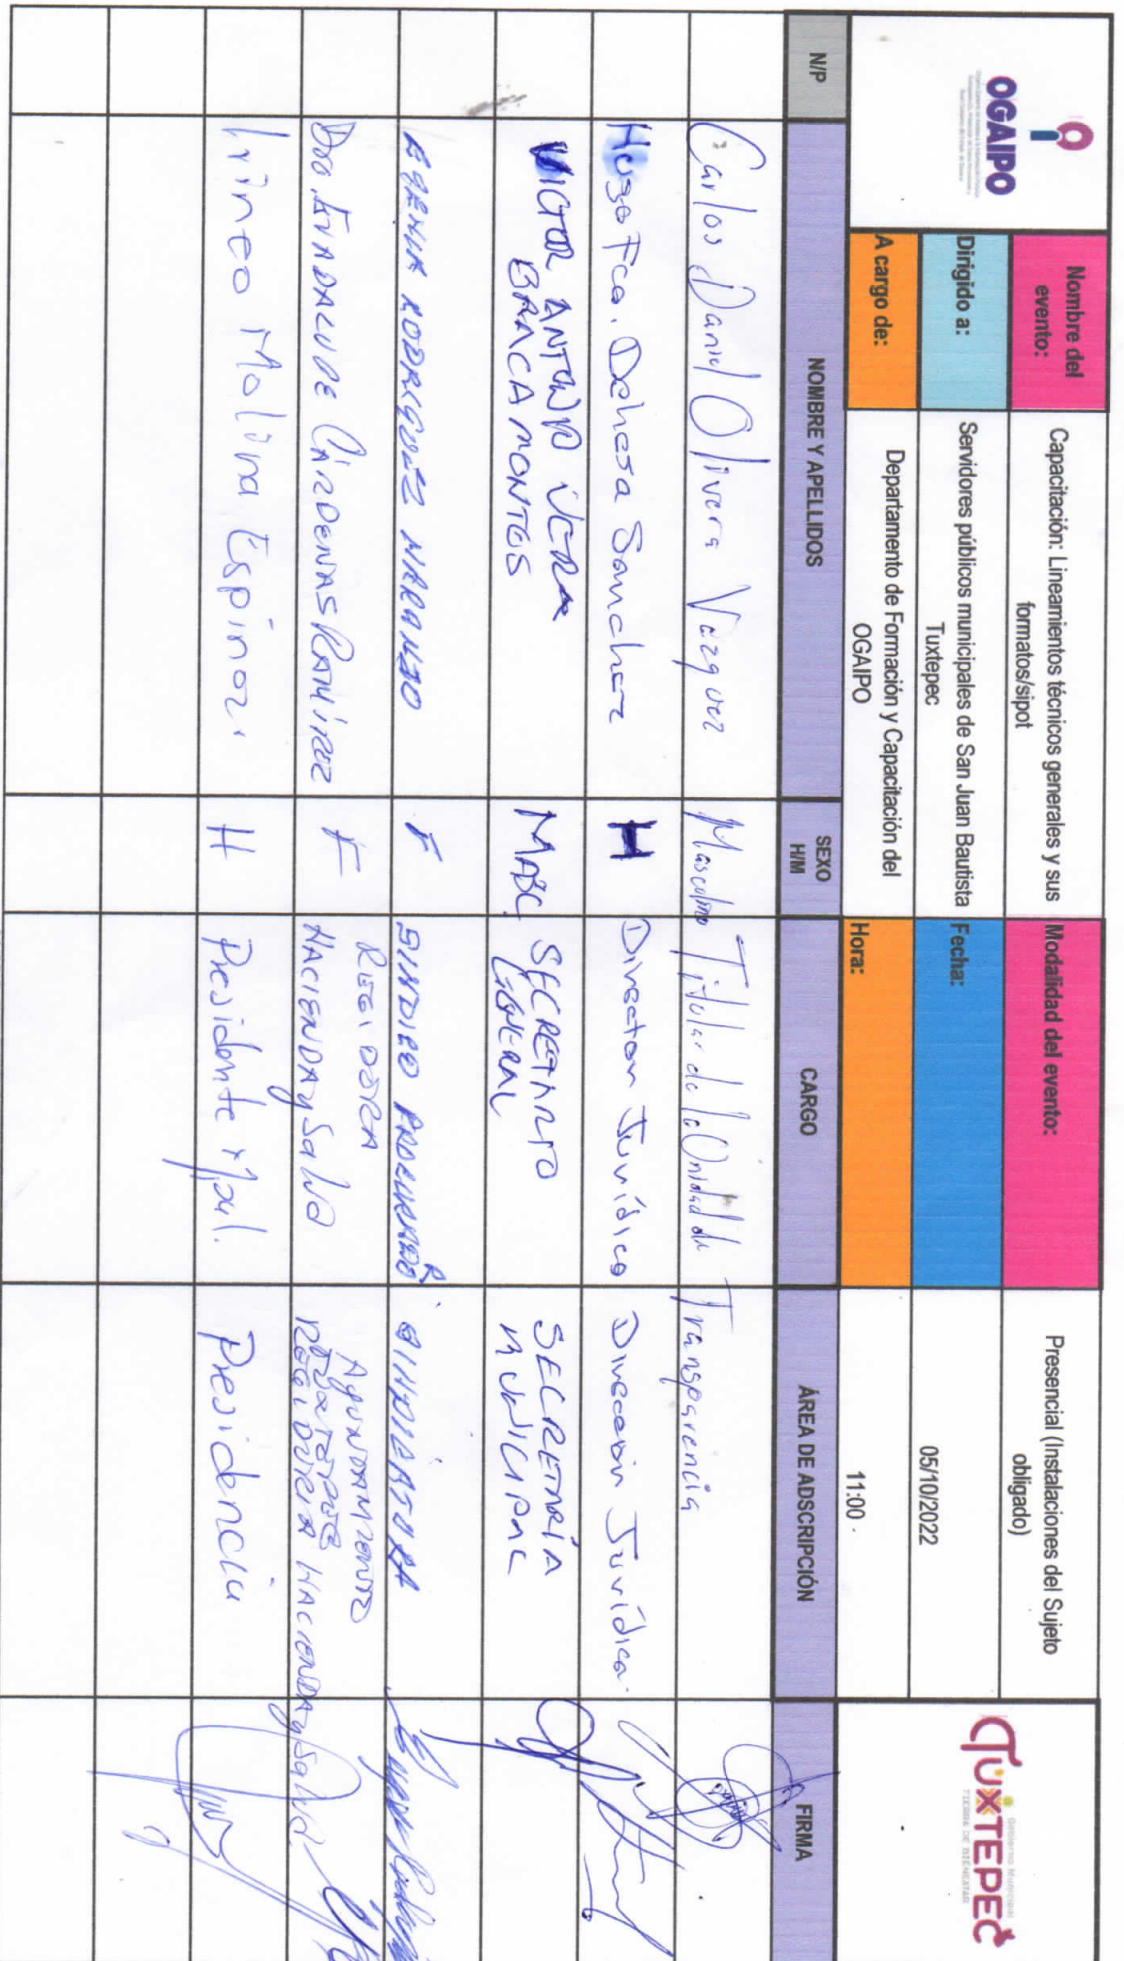 OGAIPO
Nombre del evento:
Capacitación: Lineamientos técnicos generales y sus formatos/sipot
Modalidad del evento:
Presencial (Instalaciones del Sujeto obligado)
Dirigido a:
Servidores públicos municipales de San Juan Bautista Tuxtepec
Fecha:
05/10/2022
A cargo de:
Departamento de Formación y Capacitación del OGAIPO
Hora:
11:00
Gobierno Municipal
TUXTEPEC
TIERRA DE BIENESTAR
N/P
NOMBRE Y APELLIDOS
SEXO H/M
CARGO
ÁREA DE ADSCRIPCIÓN
FIRMA
Carlos Daniel Olivera Vazquez
Masculino
Titular de la Unidad de Transparencia
Hugo Fco. Dehesa Sanchez
H
Director Jurídico
Direccion Jurídica.
VICTOR ANTONIO VERA
BRACAMONTES
MASC.
SECRETARIO
GENERAL
SECRETARÍA
MUNICIPAL
RODRIGUEZ NARANJO
F
SINDICO PROCURADOR
SINDICATURA
CÁRDENAS RAMÍREZ
F
REGIDORA
HACIENDA y SALUD
AYUNTAMIENTO
TUXTEPEC
REGIDURIA HACIENDA y Salud.
Irineo Molina Espinoza
H
Presidente Mpal.
Presidencia